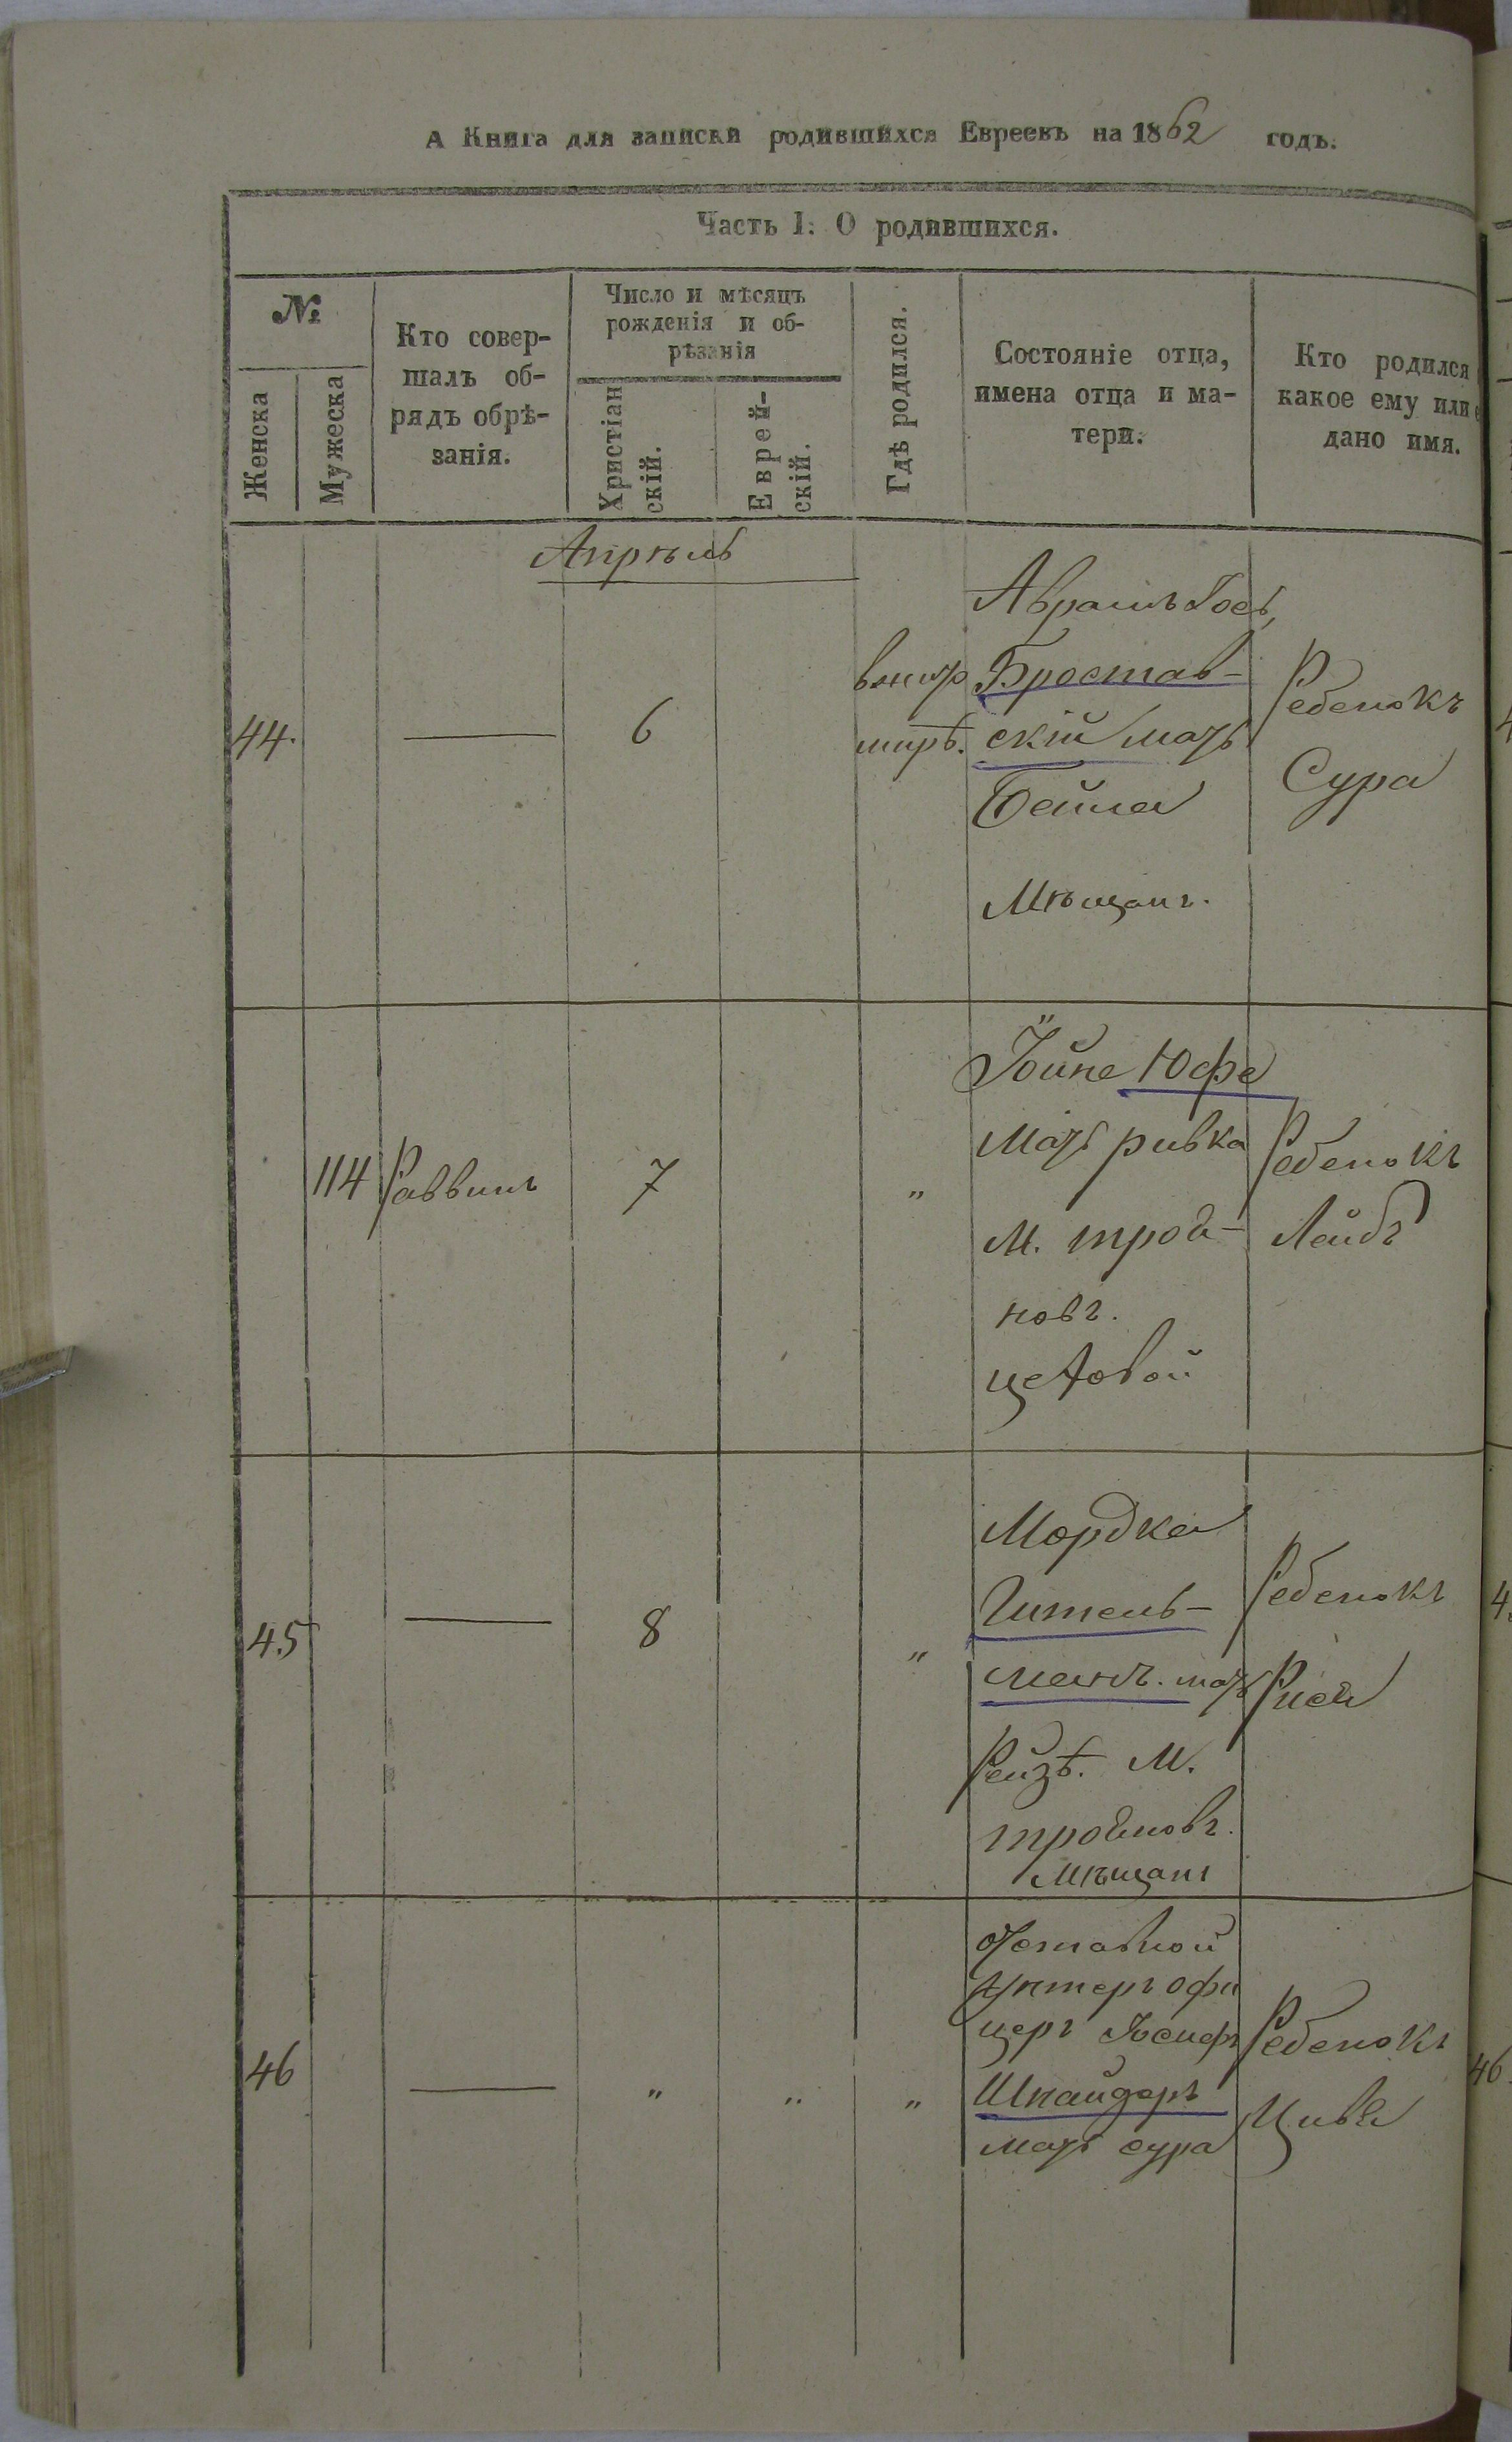 А Книга для записки родившихся Евреевъ на 1862 годъ.
Часть I: О родившихся.
№
Женска
Мужеска
Кто совер-
шалъ об-
рядъ обрѣ-
занія.
Число и мѣсяцъ
рожденія и об-
рѣзанія
Христіан
скій.
Еврей-
скій.
Гдѣ родился.
Состояніе отца,
имена отца и ма-
тери.
Кто родился
какое ему или
дано имя.
Апрѣль
44.
6
Аврамъ Іось,
Бростав-
скій мать
Бейла
Мѣщанъ.
Ребенокъ
Сура
114
Раввинъ
7
"
Іойне Юфе
Мать ривка
М. трой-
новъ.
цеховой
Ребенокъ
Лейбъ
45
8
"
Мордка
Гитель-
манъ. мать
Рейзѣ. М.
тройновъ.
Мѣщанъ
Ребенокъ
46
"
"
"
отставной
Унтеръ офи
церъ Іосифъ
Шпайдеръ
мать сура
Ребенокъ
Цива
4
4
46.